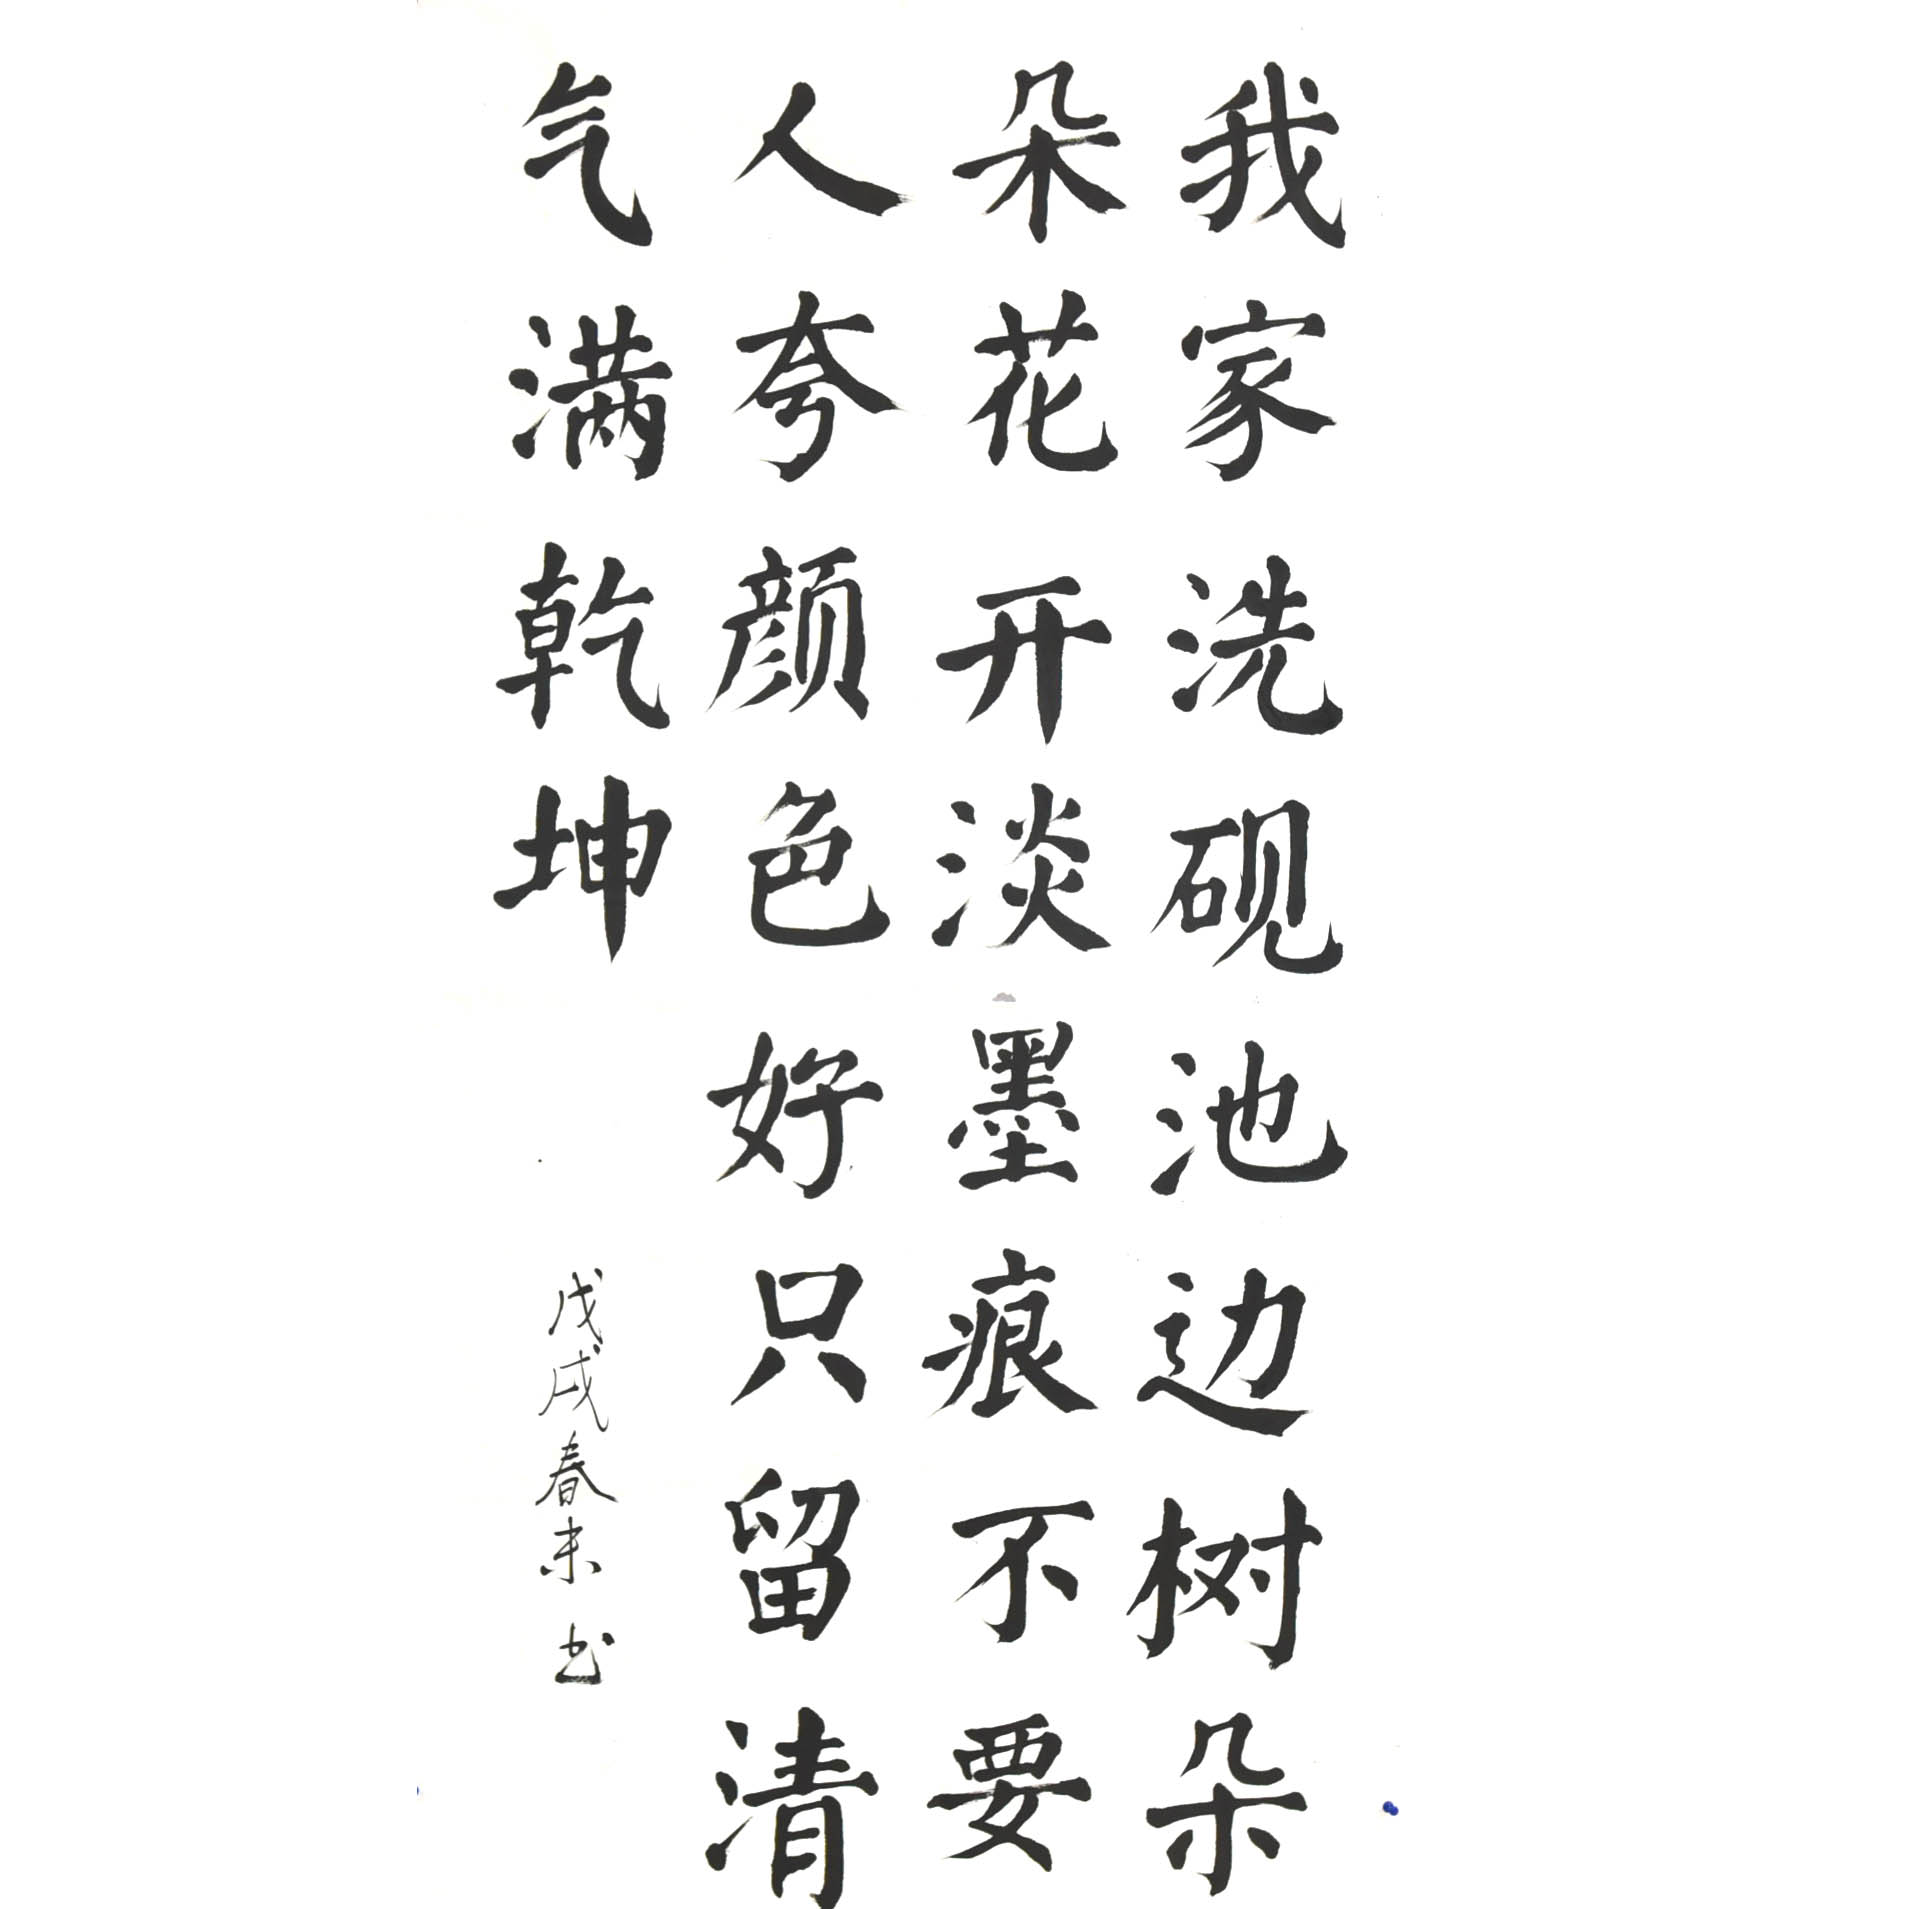 我家洗砚池边树朵
朵花开淡墨痕不要
人夸颜色好只留清
气满乾坤
戊戌春末 书